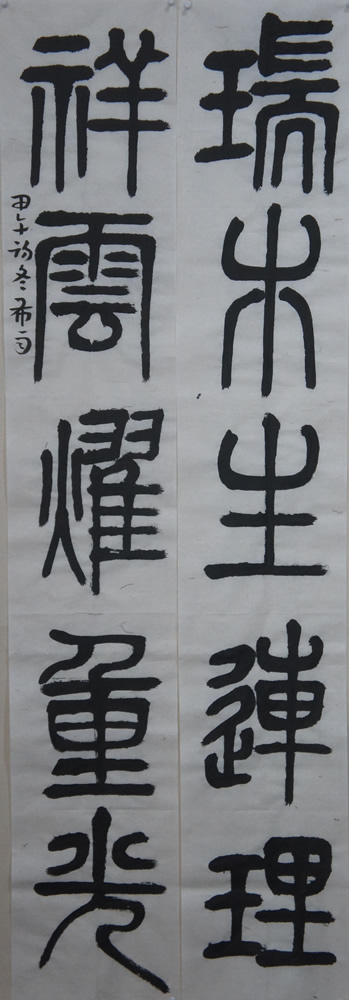 瑞木生連理
祥雲耀重光
甲午初冬希雨